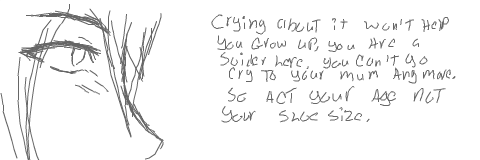 Crying about it won't Help
you Grow up, you Are a
Soider here, you Can't go
Cry To your mum Any more.
So ACT your Age not
your shoe size.